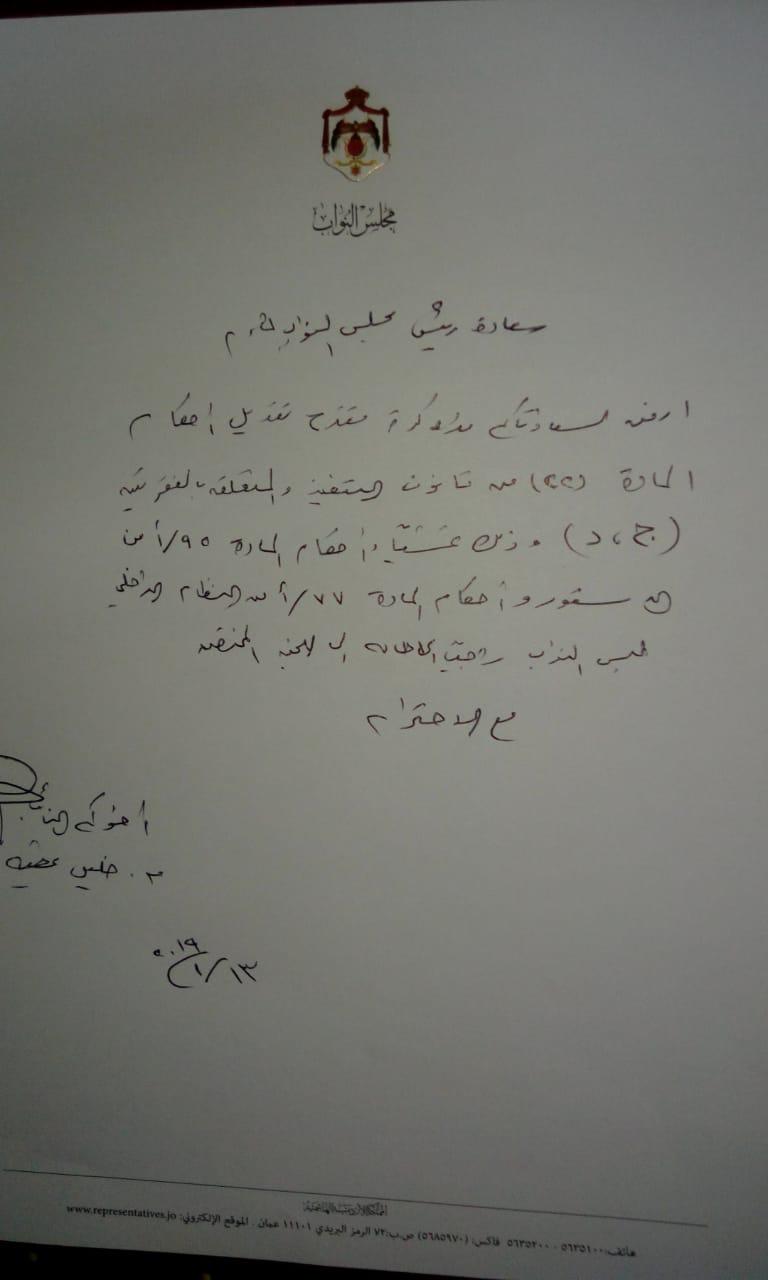 مجلس النواب
سعادة رئيس مجلس النواب الاكرم
ارفق لسعادتكم مذكرة مقترح تعديل احكام
المادة (٢٢) من قانون التنفيذ والمتعلقة بالفقرتين
(ج، د) وذلك عملاً باحكام المادة ٩٥/أ من
الدستور وأحكام المادة ٧٧/أ من النظام الداخلي
لمجلس النواب راجياً الاحالة الى اللجنة المختصة
مع الاحترام
أخوكم النائب
م. خليل عطية
١٣/١/٢٠١٩
المملكة الأردنية الهاشمية
هاتف: ٥٦٣٥١٠٠ - ٥٦٣٥٢٠٠ فاكس: (٥٦٨٥٩٧٠) ص.ب: ٧٢ الرمز البريدي ١١١٠١ عمان . الموقع الإلكتروني: www.representatives.jo